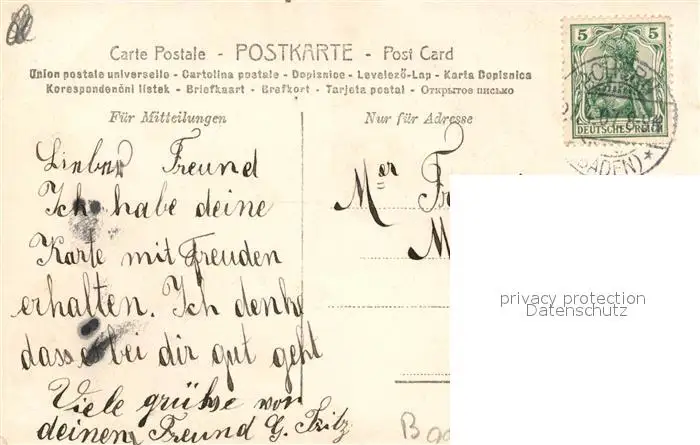 Carte Postale - POSTKARTE - Post Card
Union postale universelle - Cartolina postale - Dopisnice - Levelező-Lap - Karta Dopisnica
Korespondenční lístek - Briefkaart - Brefkort - Tarjeta postal - Открытое письмо
Für Mitteilungen
Nur für Adresse
5 5
DEUTSCHES REICH
(BADEN)*
Lieber Freund
Ich habe deine
Karte mit Freuden
erhalten. Ich denke
dass bei dir gut geht
Viele grühse von
deinem Freund G. Fritz
Mer
privacy protection
Datenschutz